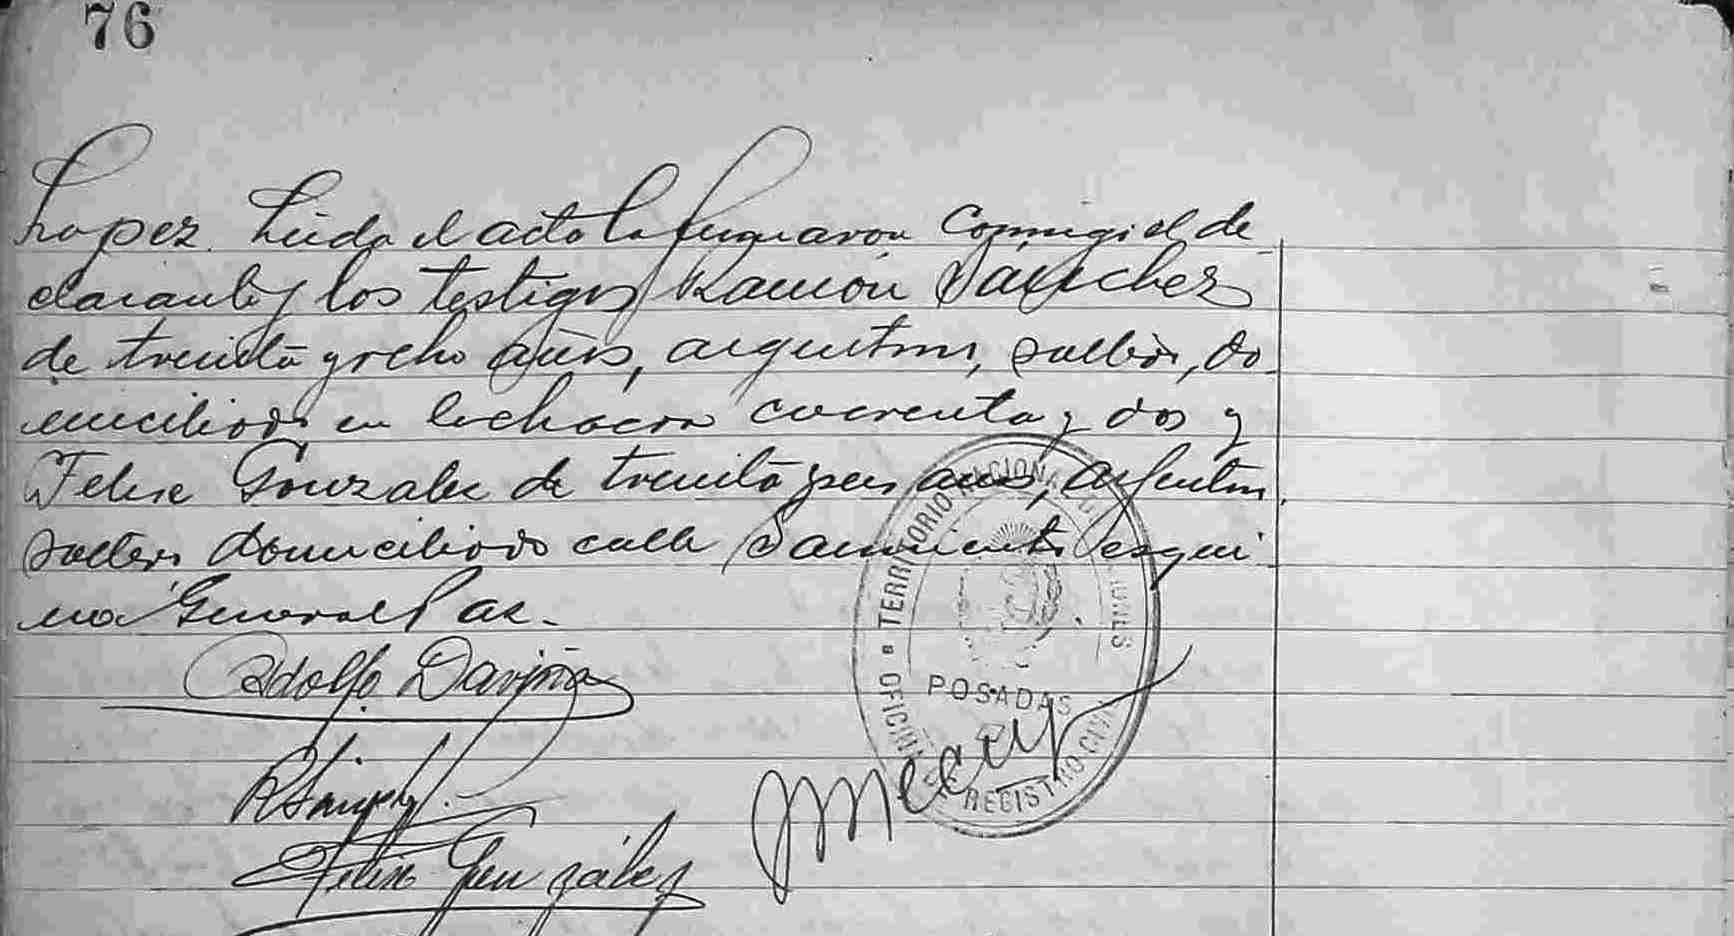 76
Lopez. Leida el acta la firmaron conmigo el de
clarante y los testigos Ramón Sánchez
de treinta y ocho años, argentino, soltero, do
miciliado en la chacra cuarenta y dos y
Felix Gonzalez de treinta y seis años, argentino,
soltero domiciliado calle Sarmiento esqui
na General Paz.
Adolfo
RSánchez
Felix González
TERRITORIO NACIONAL DE MISIONES
POSADAS
OFICINA REGISTRO CIVIL